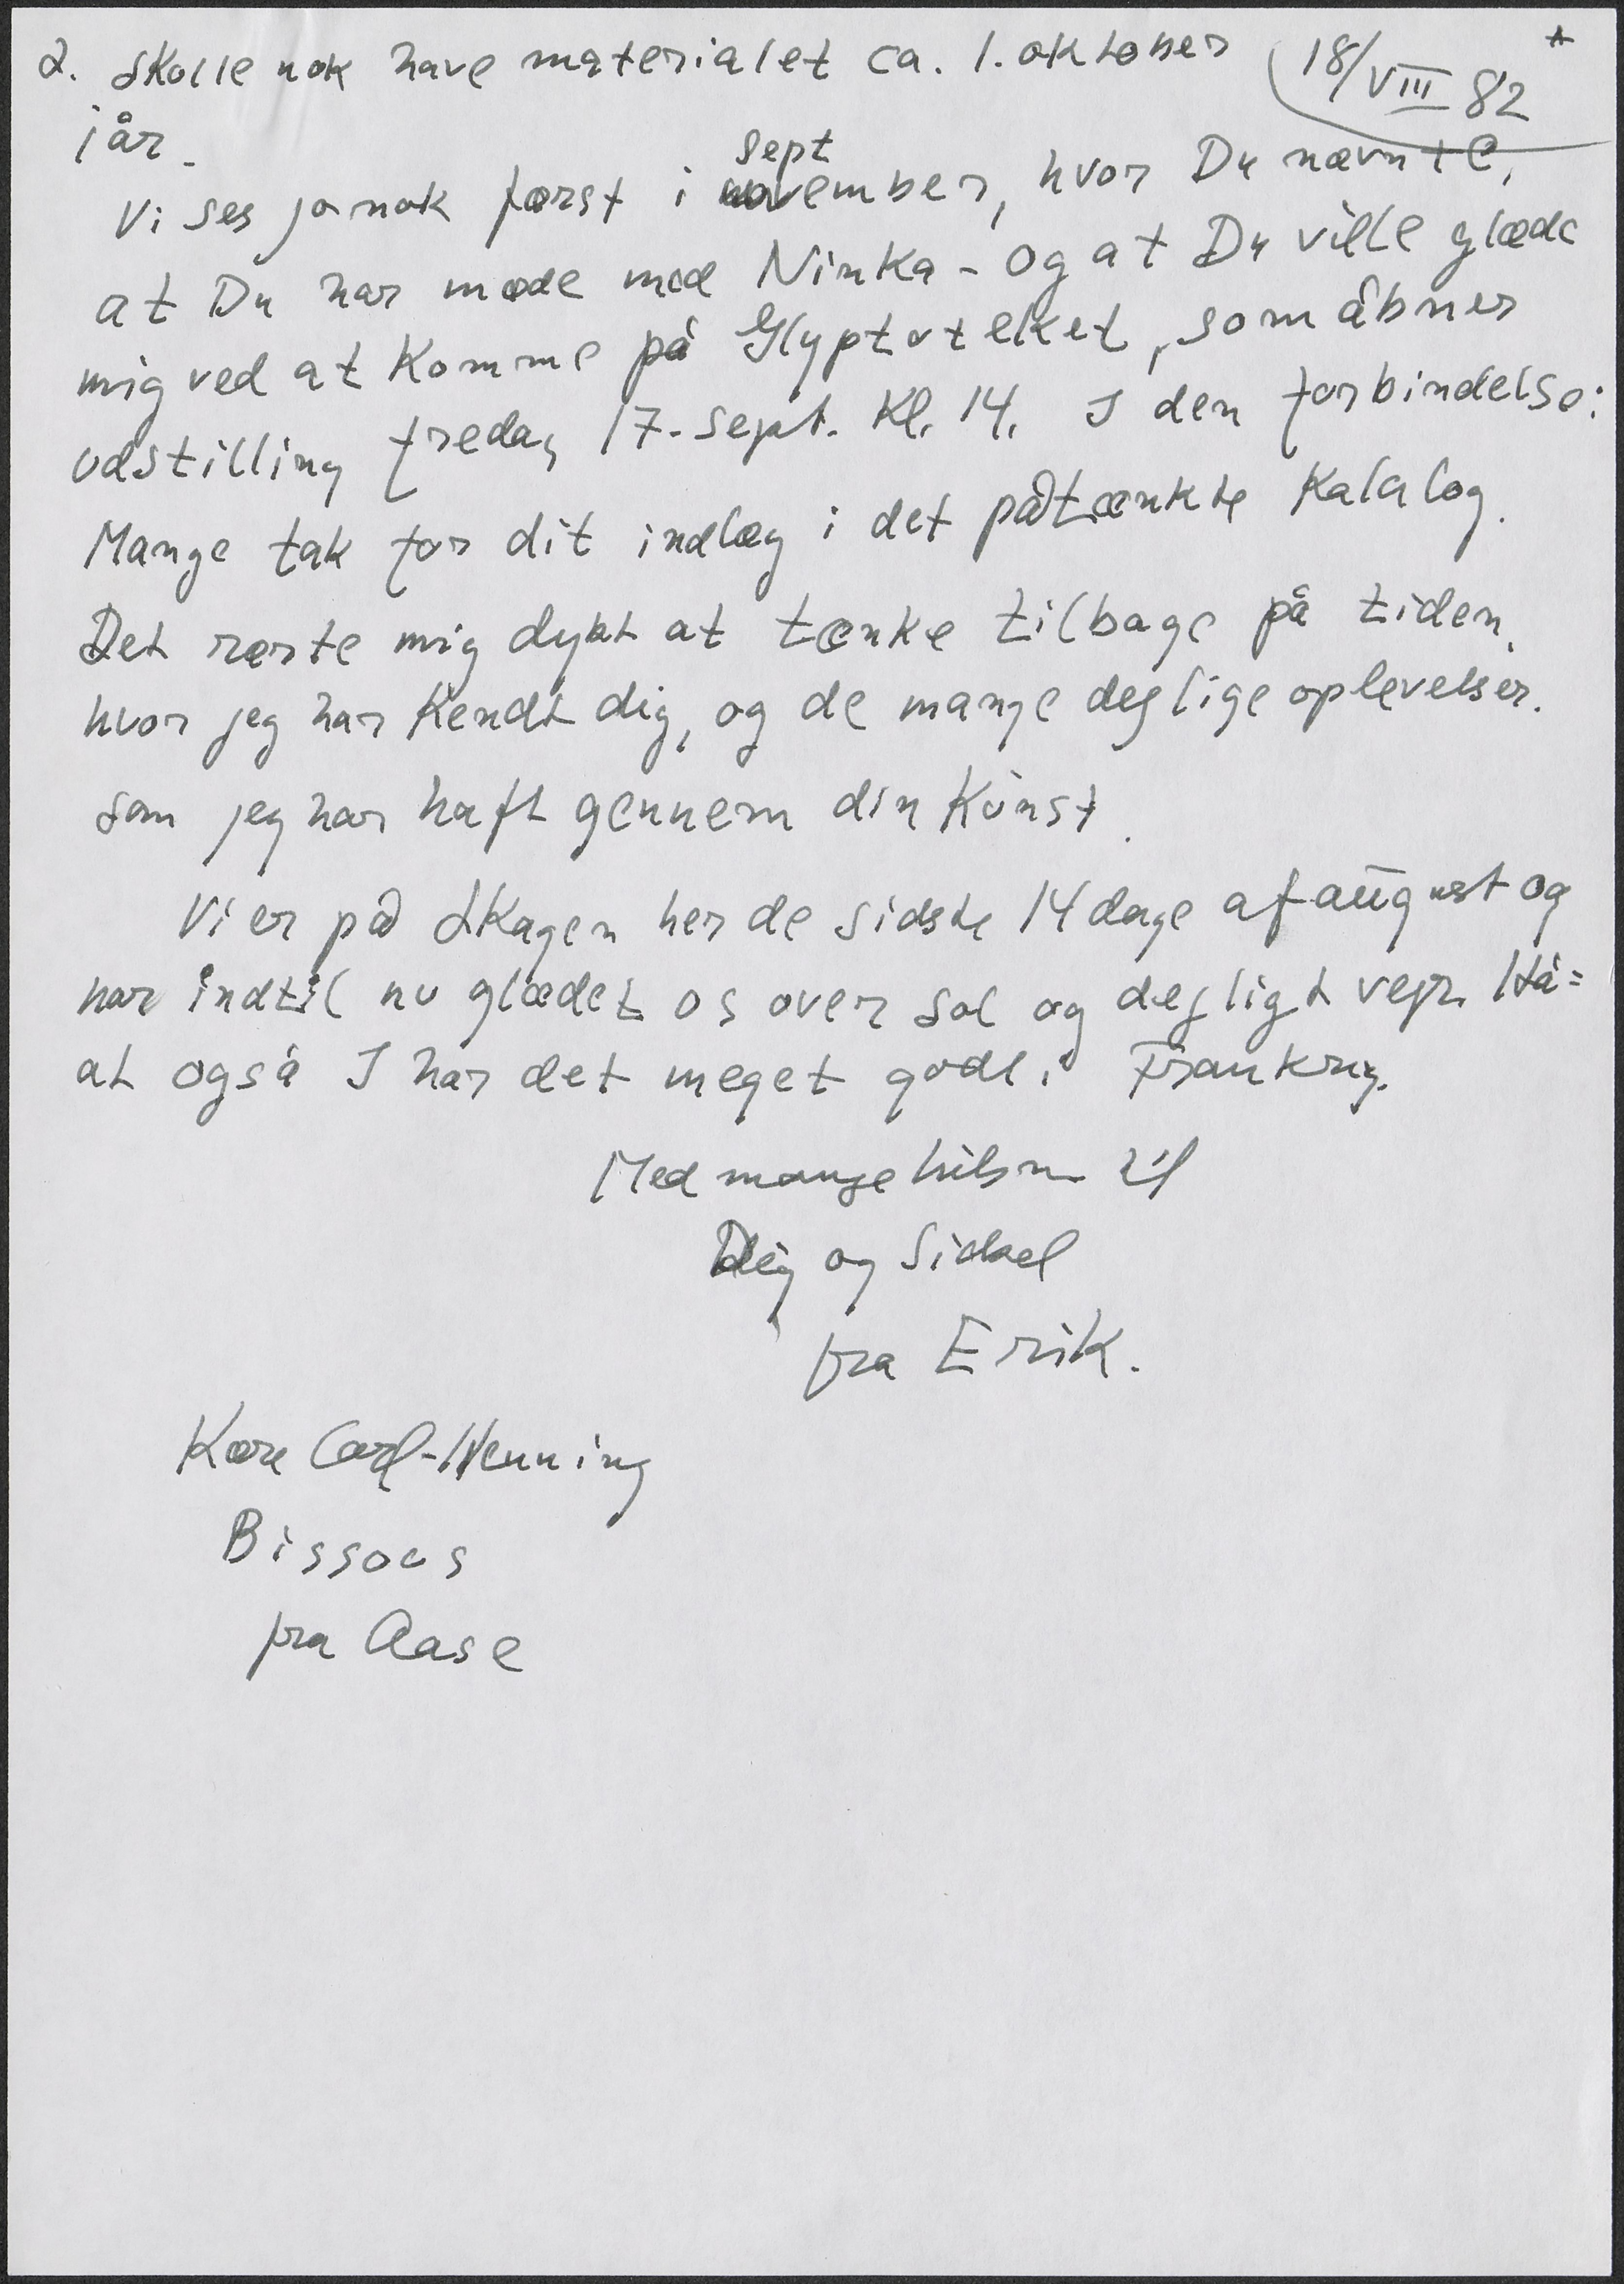 2. skulle nok have materialet ca. 1. oktober
18/VIII 82
i år.
sept
Vi ses jo nok først i november, hvor Du nævnte,
at Du har møde med Ninka - og at Du ville glæde
mig ved at komme på Glyptoteket, som åbner
udstilling fredag 17. sept. Kl. 14. I den forbindelse:
Mange tak for dit indlæg i det påtænkte katalog.
Det rørte mig dybt at tænke tilbage på tiden,
hvor jeg har kendt dig, og de mange dejlige oplevelser.
som jeg har haft gennem din kunst.
Vi er på Skagen her de sidste 14 dage af august og
har indtil nu glædet os over sol og dejligt vejr. Hå=
at også I har det meget godt i Frankrig.
Med mange hilsner til
Dig og Sidsel
fra Erik.
Kære Carl-Henning
Bissous
fra Aase